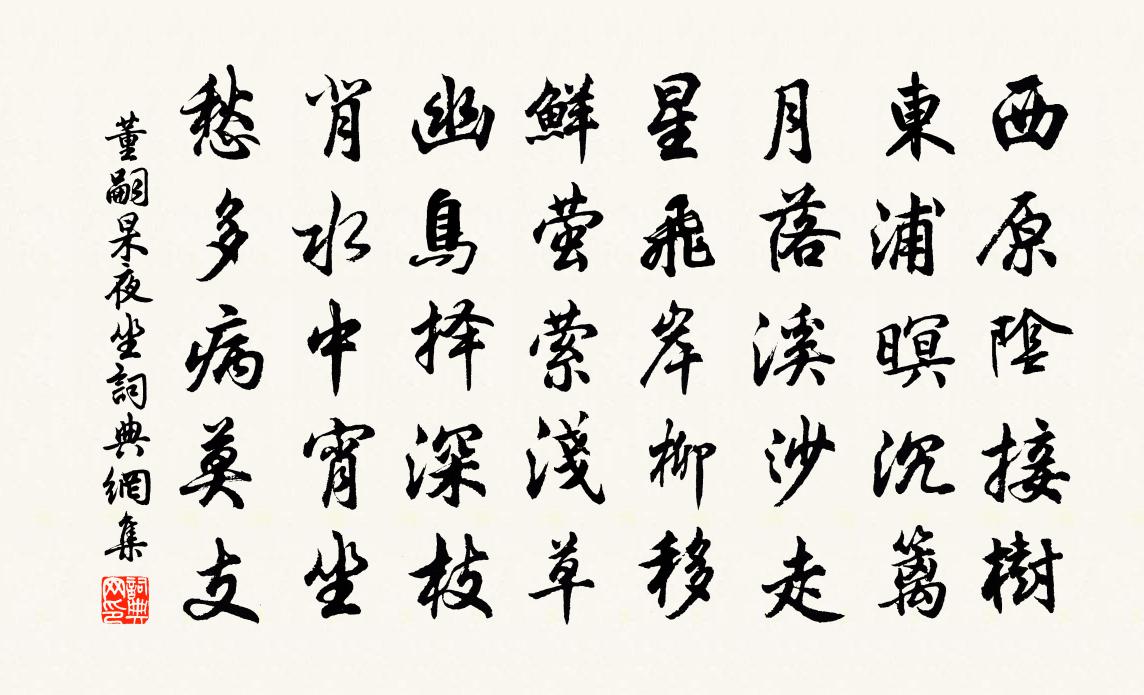 西原陰接樹
東浦暝沉篱
月落溪沙走
星飛岸柳移
鮮萤萦淺草
幽鳥择深枝
肖水中宵坐
愁多病莫支
董嗣杲夜坐詞典網集
詞典网印